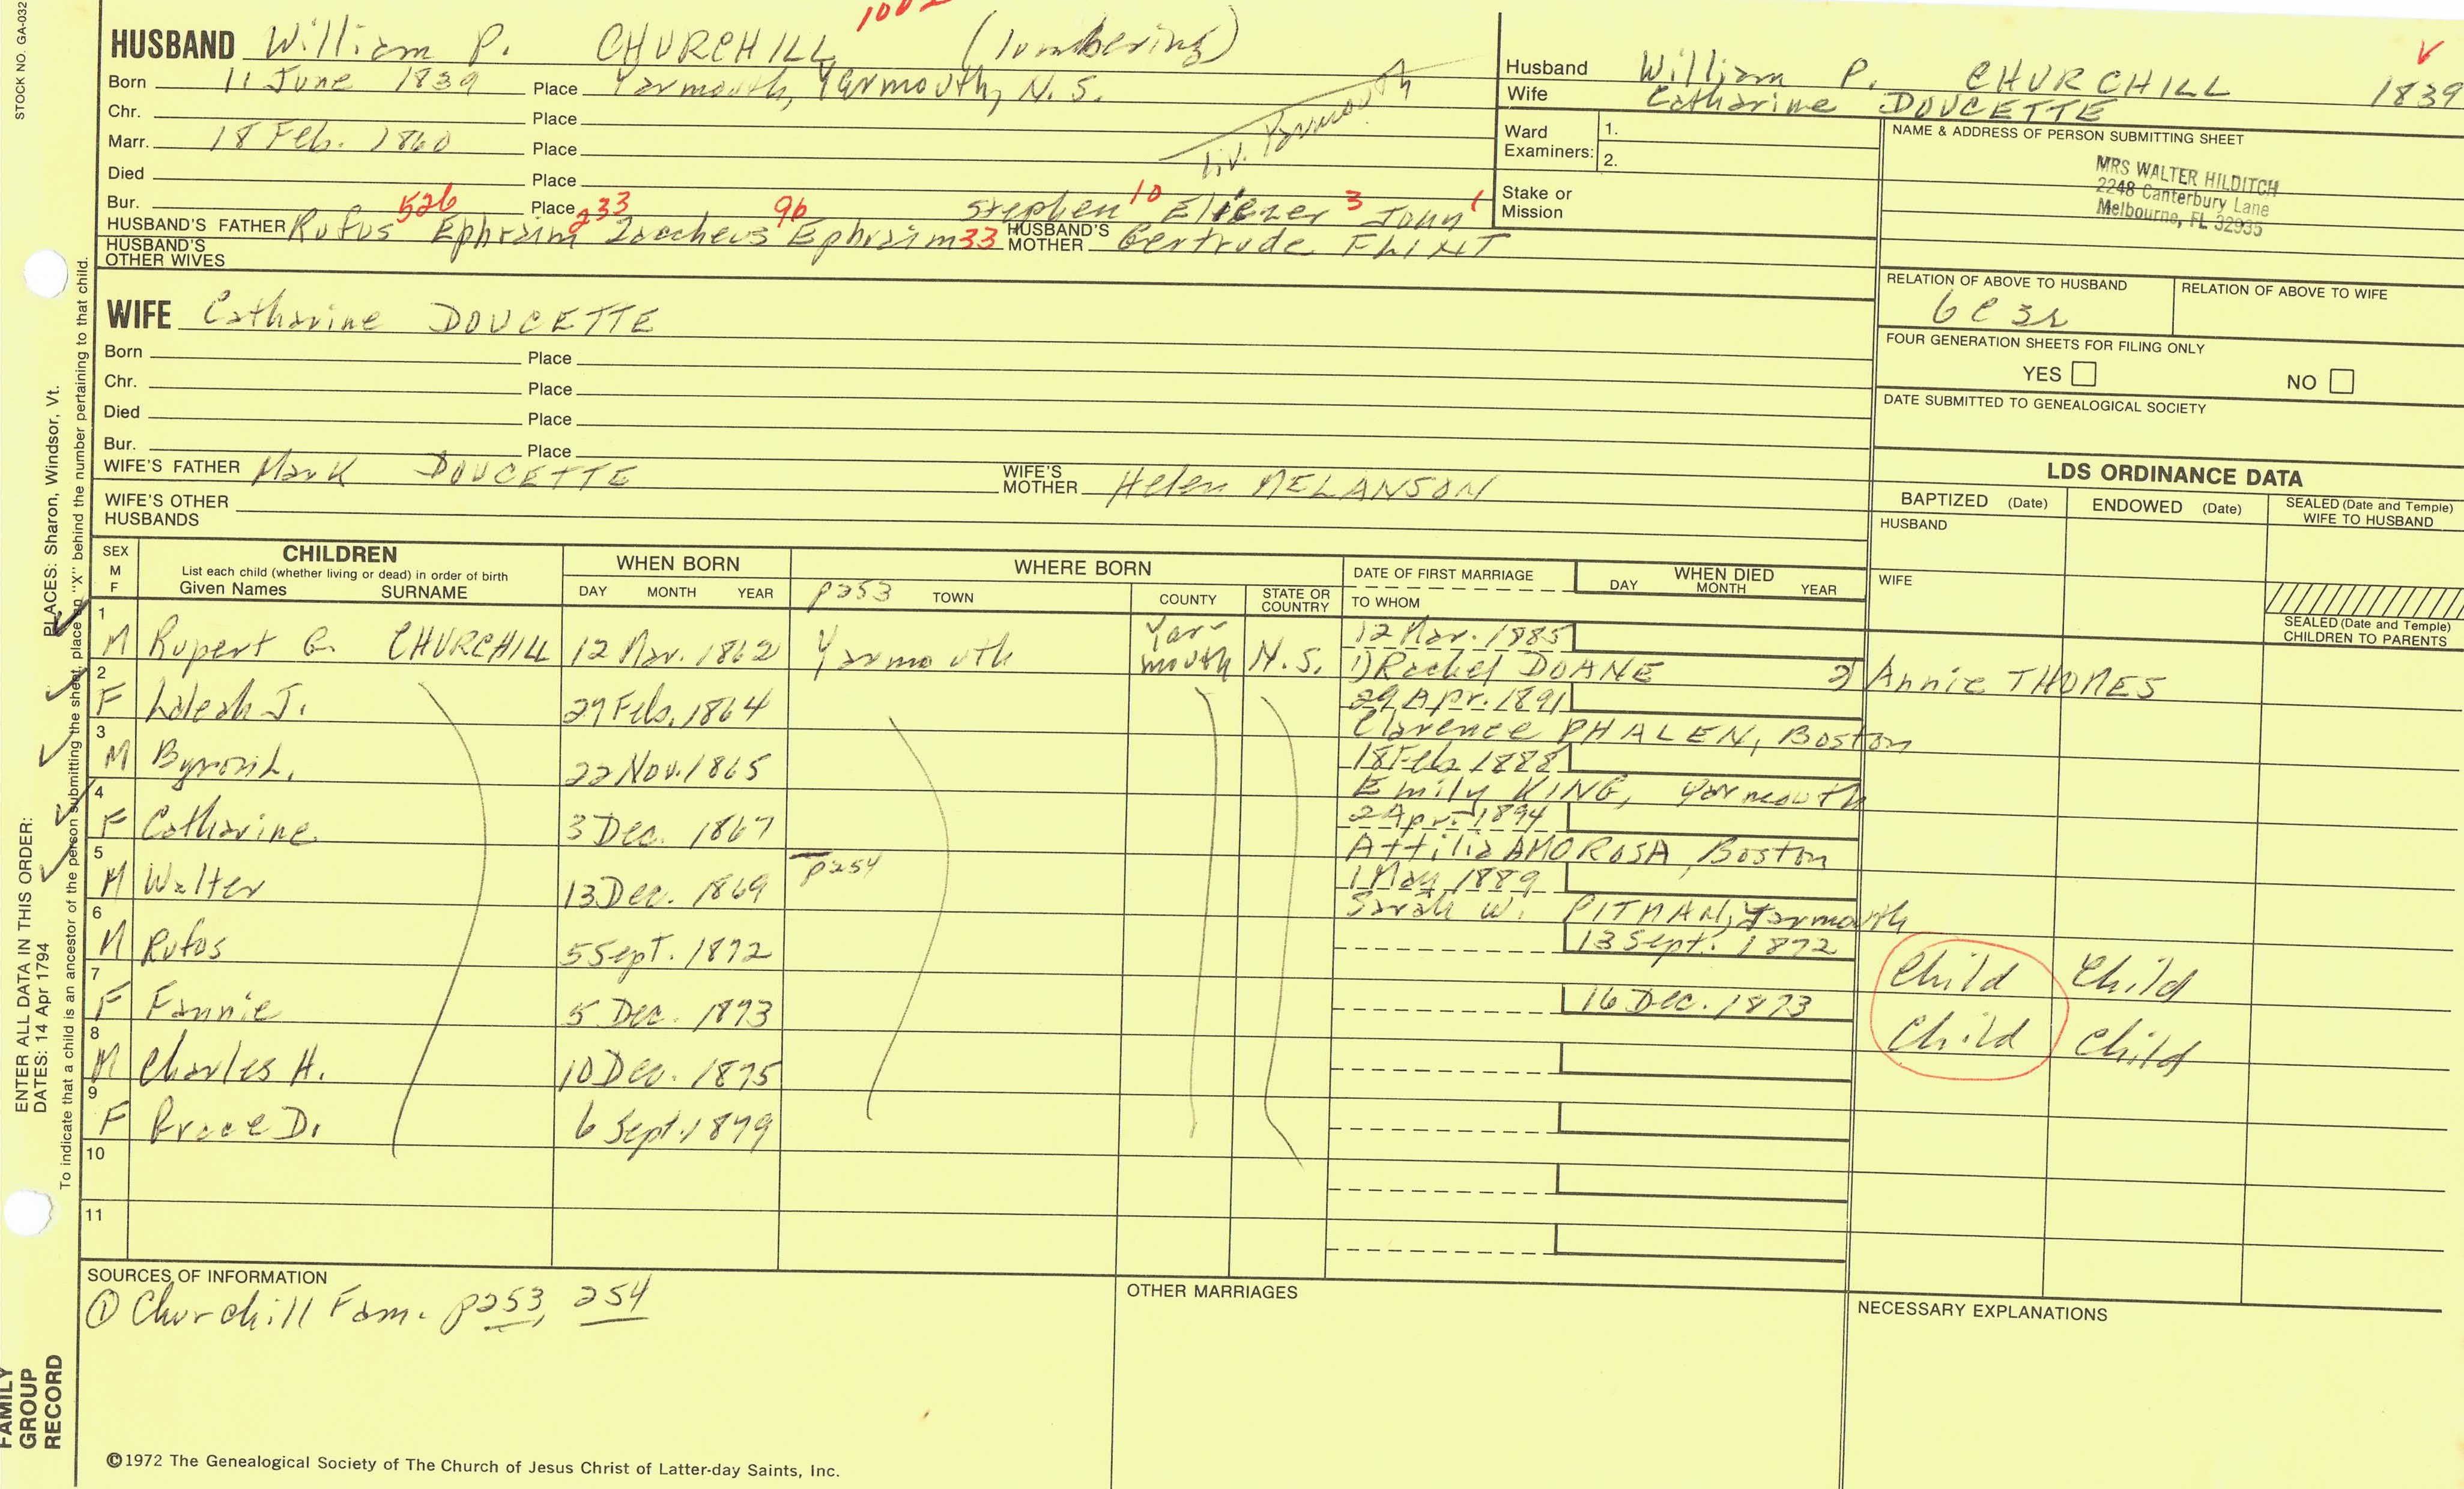 STOCK NO. GA-032
HUSBAND William P. CHURCHILL (lumbering)
Born 11 June 1839 Place Yarmouth, Yarmouth, N. S.
Chr. Place
Marr. 18 Feb. 1860 Place
liv. Yarmouth
Died Place
Bur. Place
526 233 96 Stephen 10 Eliezer 3 John 1
HUSBAND'S FATHER Rufus Ephraim Zaccheus Ephraim 33 HUSBAND'S MOTHER Gertrude FLINT
HUSBAND'S OTHER WIVES
WIFE Catharine DOUCETTE
Born Place
Chr. Place
Died Place
Bur. Place
WIFE'S FATHER Mark DOUCETTE WIFE'S MOTHER Helen MELANSON
WIFE'S OTHER HUSBANDS
Husband William P. CHURCHILL 1839
Wife Catharine DOUCETTE
Ward Examiners: 1. 2.
Stake or Mission
NAME & ADDRESS OF PERSON SUBMITTING SHEET
MRS WALTER HILDITCH
2248 Canterbury Lane
Melbourne, FL 32935
RELATION OF ABOVE TO HUSBAND RELATION OF ABOVE TO WIFE
6C 3r
FOUR GENERATION SHEETS FOR FILING ONLY
YES NO
DATE SUBMITTED TO GENEALOGICAL SOCIETY
LDS ORDINANCE DATA
BAPTIZED (Date) ENDOWED (Date) SEALED (Date and Temple) WIFE TO HUSBAND
HUSBAND
WIFE
SEALED (Date and Temple) CHILDREN TO PARENTS
SEX M F
CHILDREN
List each child (whether living or dead) in order of birth
Given Names SURNAME
WHEN BORN
DAY MONTH YEAR
WHERE BORN
p253 TOWN COUNTY STATE OR COUNTRY
DATE OF FIRST MARRIAGE
TO WHOM
WHEN DIED
DAY MONTH YEAR
1 M Rupert G. CHURCHILL 12 Mar. 1862 Yarmouth Yar-mouth N.S. 12 Mar. 1885
1) Rachel DOANE 2) Annie THOMES
2 F J. 29 Feb. 1864 29 Apr. 1891
Clarence PHALEN, Boston
3 M Byron L. 22 Nov. 1865 18 Feb. 1888
Emily KING, Yarmouth
4 F Catharine 3 Dec. 1867 2 Apr. 1894
Attilia AMOROSA, Boston
5 M Walter 13 Dec. 1869 p254 1 May 1889
Sarah W. PITMAN, Yarmouth
6 M Rufus 5 Sept. 1872 13 Sept. 1872 Child Child
7 F Fannie 5 Dec. 1873 16 Dec. 1873 Child Child
8 M Charles H. 10 Dec. 1875
9 F Grace D. 6 Sept. 1879
10
11
SOURCES OF INFORMATION
① Churchill Fam. p253, 254
OTHER MARRIAGES
NECESSARY EXPLANATIONS
©1972 The Genealogical Society of The Church of Jesus Christ of Latter-day Saints, Inc.
ENTER ALL DATA IN THIS ORDER:
DATES: 14 Apr 1794 PLACES: Sharon, Windsor, Vt.
To indicate that a child is an ancestor of the person submitting the sheet, place an "X" behind the number pertaining to that child.
FAMILY
GROUP
RECORD